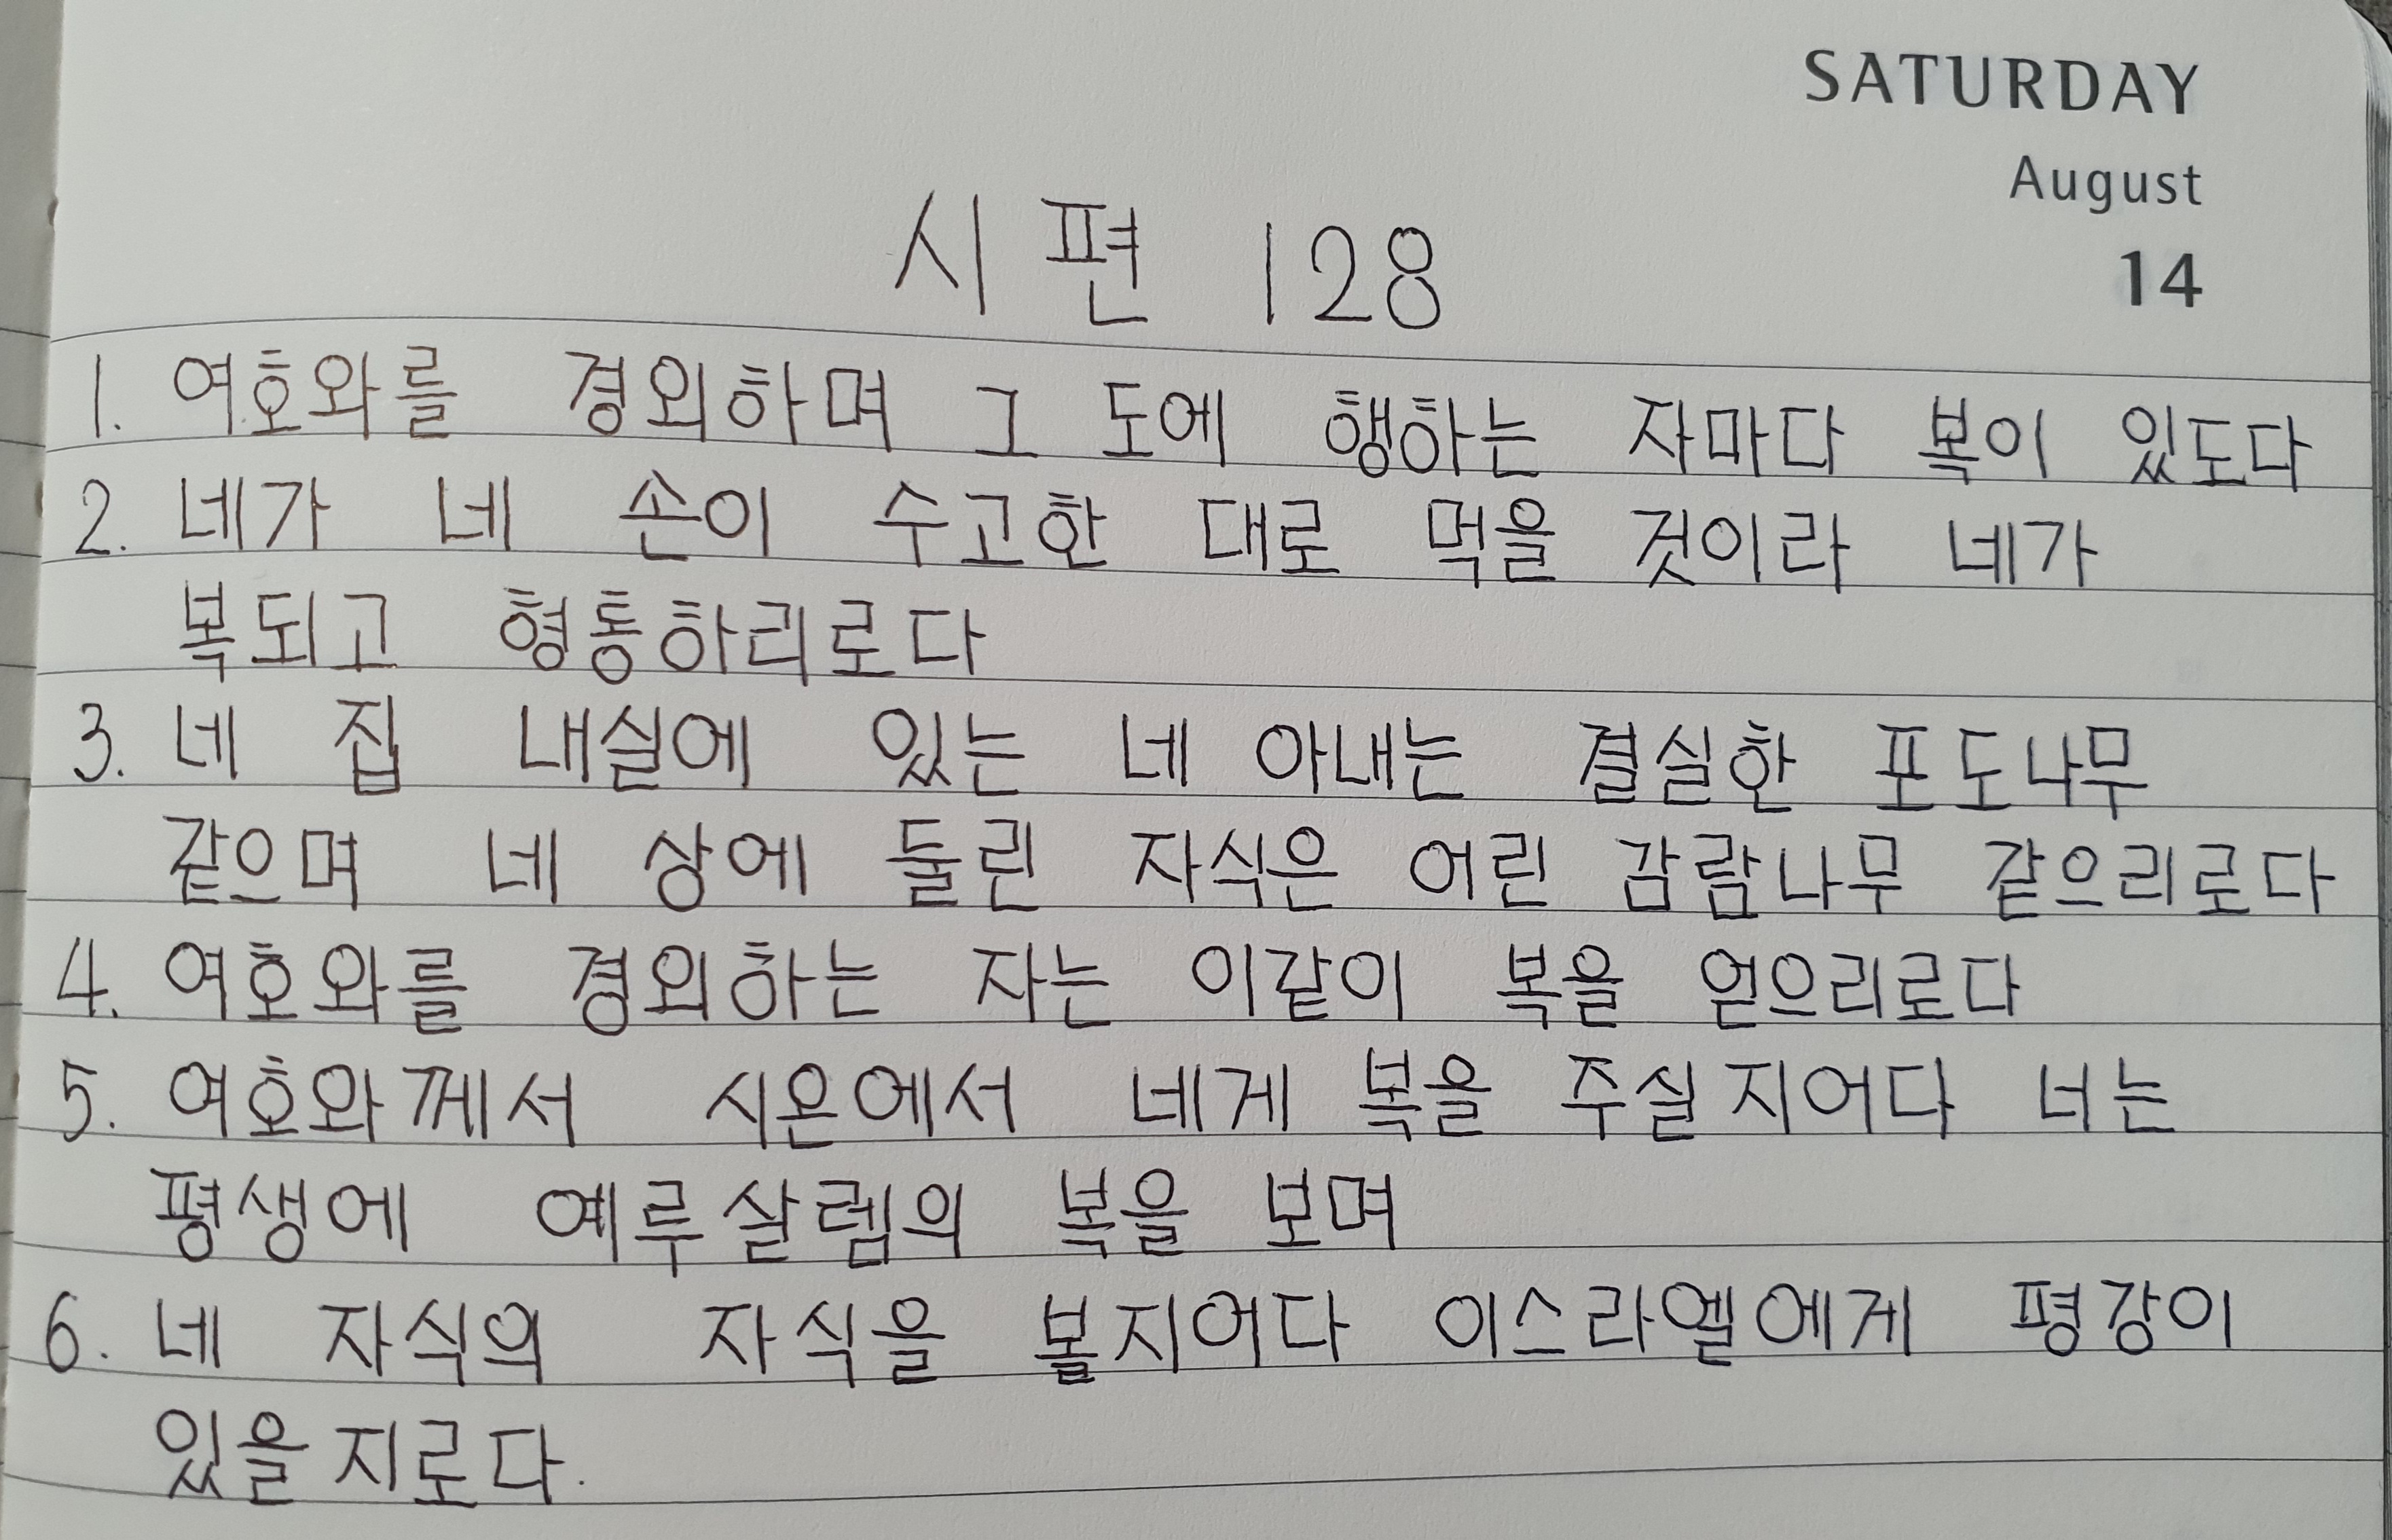 SATURDAY
August
14
시편 128
1. 여호와를 경외하며 그 도에 행하는 자마다 복이 있도다
2. 네가 네 손이 수고한 대로 먹을 것이라 네가
복되고 형통하리로다
3. 네 집 내실에 있는 네 아내는 결실한 포도나무
같으며 네 상에 둘린 자식은 어린 감람나무 같으리로다
4. 여호와를 경외하는 자는 이같이 복을 얻으리로다
5. 여호와께서 시온에서 네게 복을 주실지어다 너는
평생에 예루살렘의 복을 보며
6. 네 자식의 자식을 볼지어다 이스라엘에게 평강이
있을지로다.